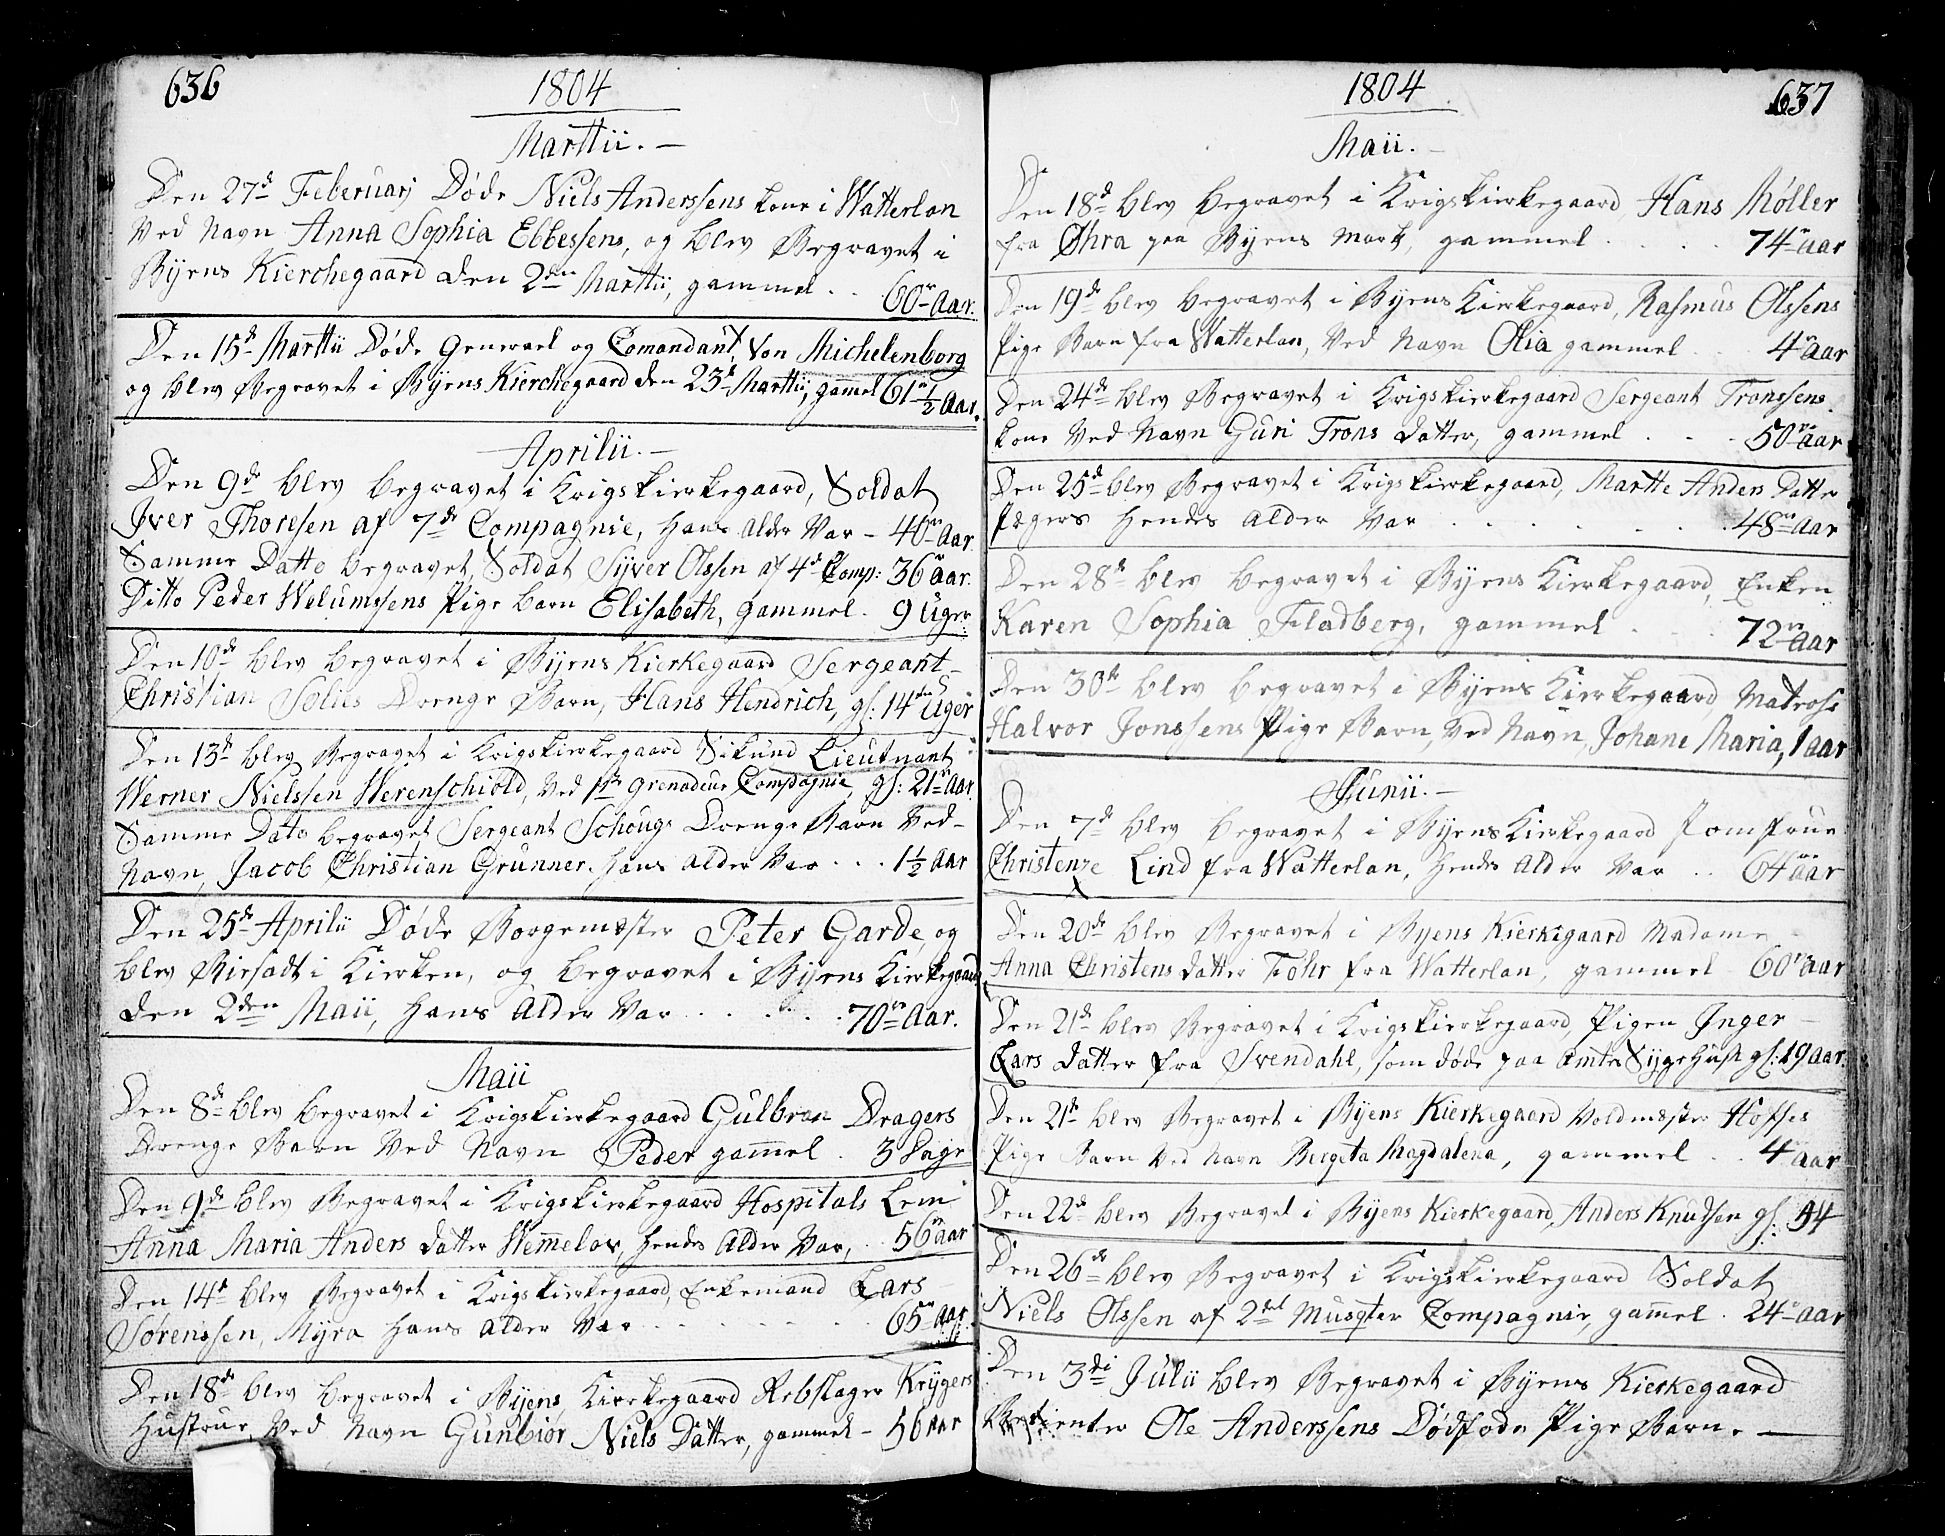 636
1804
Marttii. —
Den 27de Februarj Døde Niels Anderssens kone i Watterlan
Ved Navn Anna Sophia Ebbessens, og blev Begravet i
Byens Kierchegaard den 2den Marttii, gammel . . 60 Aar.
Den 15de Marttii Døde Generael og Comandant, Von Michelenborg
og blev Begravet i Byens Kierchegaard den 23de Marttii, gam̄el 61 1/2 Aar.
Aprilii. —
Den 9de blev begravet i Krigskierkegaard, Soldat
Iver Thoresen af 7de Compagnie, hans alder var – 40 Aar
Samme Datto begravet, Soldat Syver Olssen af 4de Comp: 36 aar.
Ditto Peder Welumssens Pige barn Elisabeth, gammel . 9 Uger
Den 10de blev begravet i Byens Kierkegaard Sergeant –
Christian Solies Drenge Barn, Hans Hendrich, gl: 14 Uger
Den 13de blev Begravet i Krigskierkegaard Sikund Lieutnant
Werner Nielssen Werenschiold, ved 1ste Grenadeur Compagnie, gl: 21 Aar.
Samme Dato begravet Sergeant Schougs Drenge Barn Ved –
Navn, Jacob Christian Grunner. hans alder Var . . . 1 1/2 Aar
Den 25de Aprilii Døde Borgemester Peter Garde, og
blev Biesadt i Kierken, og begravet i Byens Kierkegaard
den 2den Maii, hans Alder Var . . . . . . 70 Aar.
Maii
Den 8de blev begravet i Krigskierkegaard Gulbran Dragers
Drenge Barn Ved Navn Peder gam̄el . 3 Dage
Den 9de blev Begravet i Krigskierkegaard Hospitals Lem
Anna Maria Anders Datter Wem̄elov, hendes Alder Var, . . 56 aar
Den 14de blev Begravet i Krigskierkegaard, Enkemand Lars
Sørenssen, Myra hans alder Var . . . . . . . 65 Aar.
Den 18de blev begravet i Byens Kirkegaard Rebslager Krygers
Hustrue, Ved Navn Gunbior Niels Datter, gammel – 56 aar
1804
637
Maii. –
Den 18de blev begravet i Krigskierkegaard Hans Møller
fra Øhra paa Byens Mark, gammel . . . . 74 aar
Den 19de blev begravet i Byens Kierkegaard, Rasmus Olssens
Pige Barn fra Watterlan, Ved Navn Olia gammel . . 4 aar
Den 24de blev Begravet i Krigskierkegaard Sergeant Tronssens
kone Ved Navn Guri Trons Datter, gammel . . . 50 aar
Den 25de blev Begravet i Krigskierkegaard, Martte Anders Datter
Jægers hendes alder Var . . . . . . . 48 aar
Den 28de blev begravet i Byens Kierkegaard, Enken
Karen Sophia Fladberg, gammel . . . 72 aar
Den 30te blev begravet i Byens Kierkegaard Matrose
Halvor Jonssens Pige Barn, Ved Navn, Johane Maria, 1 aar
Junii. –
Den 7de blev begravet i Byens Kierkegaard Jomfrue
Christenze Lind fra Watterlan, hendes Alder Var . . 64 aar
Den 20de blev Begravet i Byens Kierkegaard Madame –
Anna Christens Datter Fohr fra Watterlan, gammel 60 aar
Den 21de blev Begravet i Krigskierkegaard, Pigen Inger –
Lars Datter fra Svendahl, som døde paa Amtes Sygehuset gl: 19 aar.
Den 21de blev Begravet i Byens Kierkegaard Voldmester Hoffses
Pige Barn Ved Navn Bergeta Magdalena, gammel . . 4 aar
Den 22de blev Begravet i Byens Kierkegaard, Anders Knudsen gl: 54
Den 26de blev Begravet i Krigskierkegaard Soldat
Niels Olssen af 2det Musqter Compagnie, gam̄el . 24 aar
Den 3di Julii blev Begravet i Byens Kierkegaard
Ole Anderssens Dødfødde Pige Barn. —